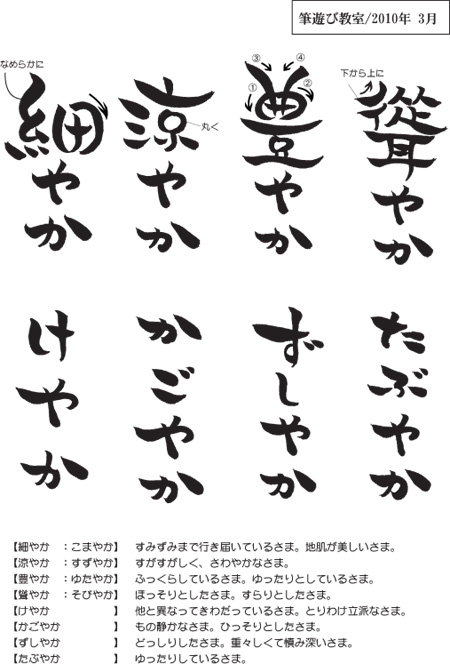 筆遊び教室/2010年 3月
下から上に
聳やか
③ ④
① ②
豊やか
丸く
涼やか
なめらかに
細やか
たぶやか
ずしやか
かごやか
けやか
【細やか ：こまやか】 すみずみまで行き届いているさま。地肌が美しいさま。
【涼やか ：すずやか】 すがすがしく、さわやかなさま。
【豊やか ：ゆたやか】 ふっくらしているさま。ゆったりとしているさま。
【聳やか ：そびやか】 ほっそりとしたさま。すらりとしたさま。
【けやか 】 他と異なってきわだっているさま。とりわけ立派なさま。
【かごやか 】 もの静かなさま。ひっそりとしたさま。
【ずしやか 】 どっしりしたさま。重々しくて慎み深いさま。
【たぶやか 】 ゆったりしているさま。